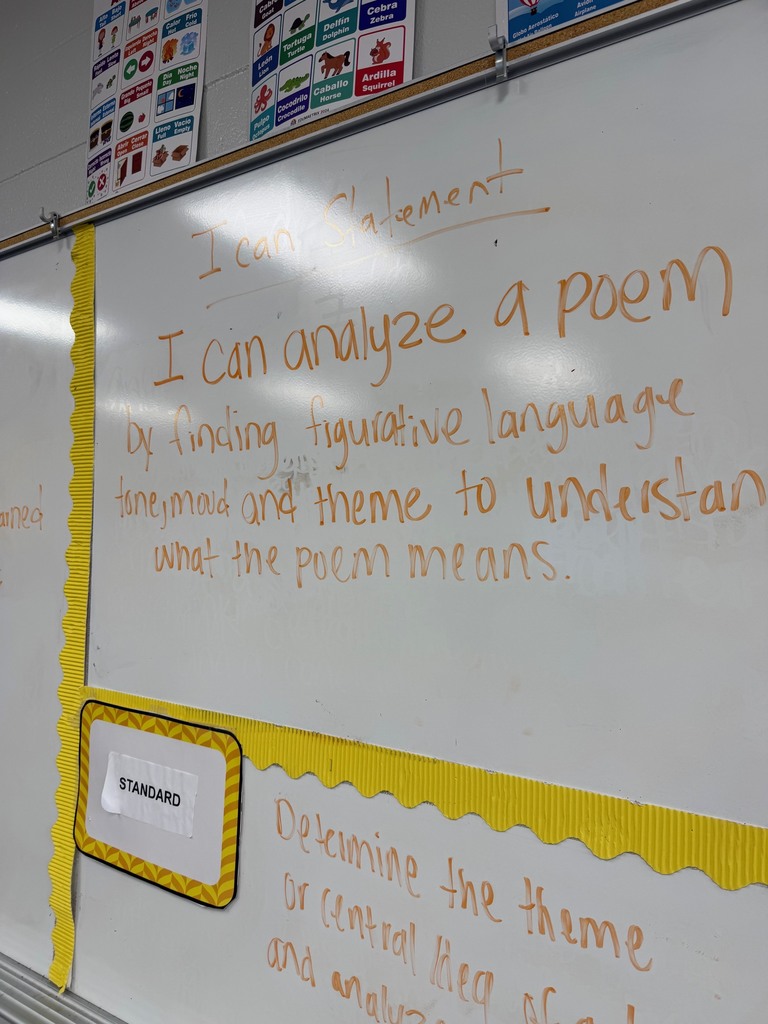 Calor Hot
Frío Cold
Día Day
Noche Night
Lleno Full
Vacío Empty
Abrir Open
Cerrar Close
León Lion
Tortuga Turtle
Delfín Dolphin
Cebra Zebra
Pulpo Octopus
Cocodrilo Crocodile
Caballo Horse
Ardilla Squirrel
Globo Aerostático
Avión Airplane
I can Statement
I can analyze a poem
by finding figurative language
tone, mood and theme to understan
what the poem means.
arned
STANDARD
Determine the theme
or central idea of a
and analyze